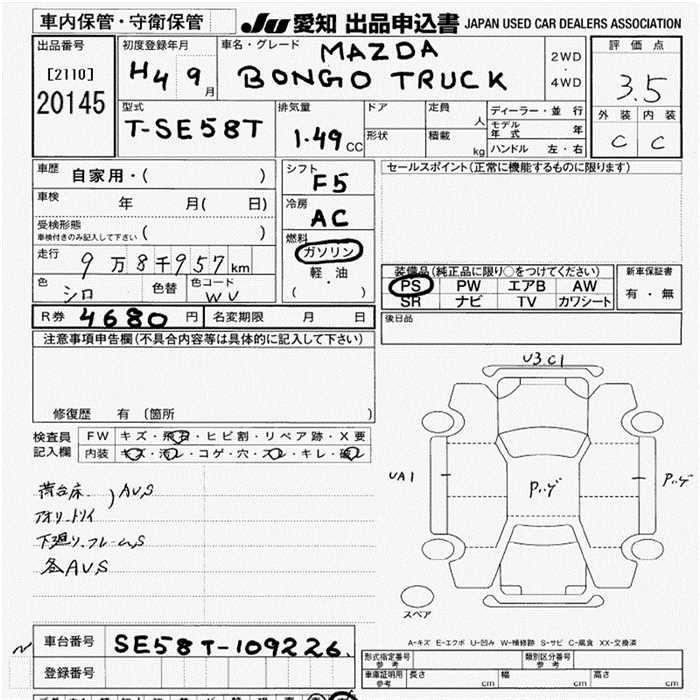 車内保管・守衛保管
JU 愛知 出品申込書 JAPAN USED CAR DEALERS ASSOCIATION
出品番号
[2110]
20145
初度登録年月
H4 9月
車名・グレード
MAZDA
BONGO TRUCK
2WD
4WD
評価点
3.5
外装 内装
C C
型式
T-SE58T
排気量
1.49 CC
ドア
形状
定員 人
積載 kg
ディーラー・並行
モデル年式 年
ハンドル 左・右
車歴 自家用・( )
車検 年 月( 日)
受検形態
車検付きのみ記入して下さい ( )
走行 9万8千957km
色 シロ 色替 色コード WV
シフト
F5
冷房
AC
燃料
ガソリン
軽・油
( )
セールスポイント(正常に機能するものに限ります)
装備品(純正品に限り○をつけてください)
PS PW エアB AW
SR ナビ TV カワシート
新車保証書
有・無
R券 4680円 名変期限 月 日
後日品
注意事項申告欄(不具合内容等は具体的に記入して下さい)
修復歴 有 (箇所 )
検査員
記入欄
FW キズ・飛石・ヒビ割・リペア跡・X要
内装 キズ・汚レ・コゲ・穴・スレ・キレ・破レ
荷台床 ) AUS
アオリ、トリイ
下廻り、フレームS
各AUS
U3.C1
UA1
Pハゲ
Pハゲ
スペア
A-キズ E-エクボ U-凹み W-補修跡 S-サビ C-腐食 XX-交換済
車台番号 SE58T-109226
登録番号
形式指定番号
参考
類別区分番号
参考
車庫証明用
参考
長さ cm 幅 cm 高さ cm